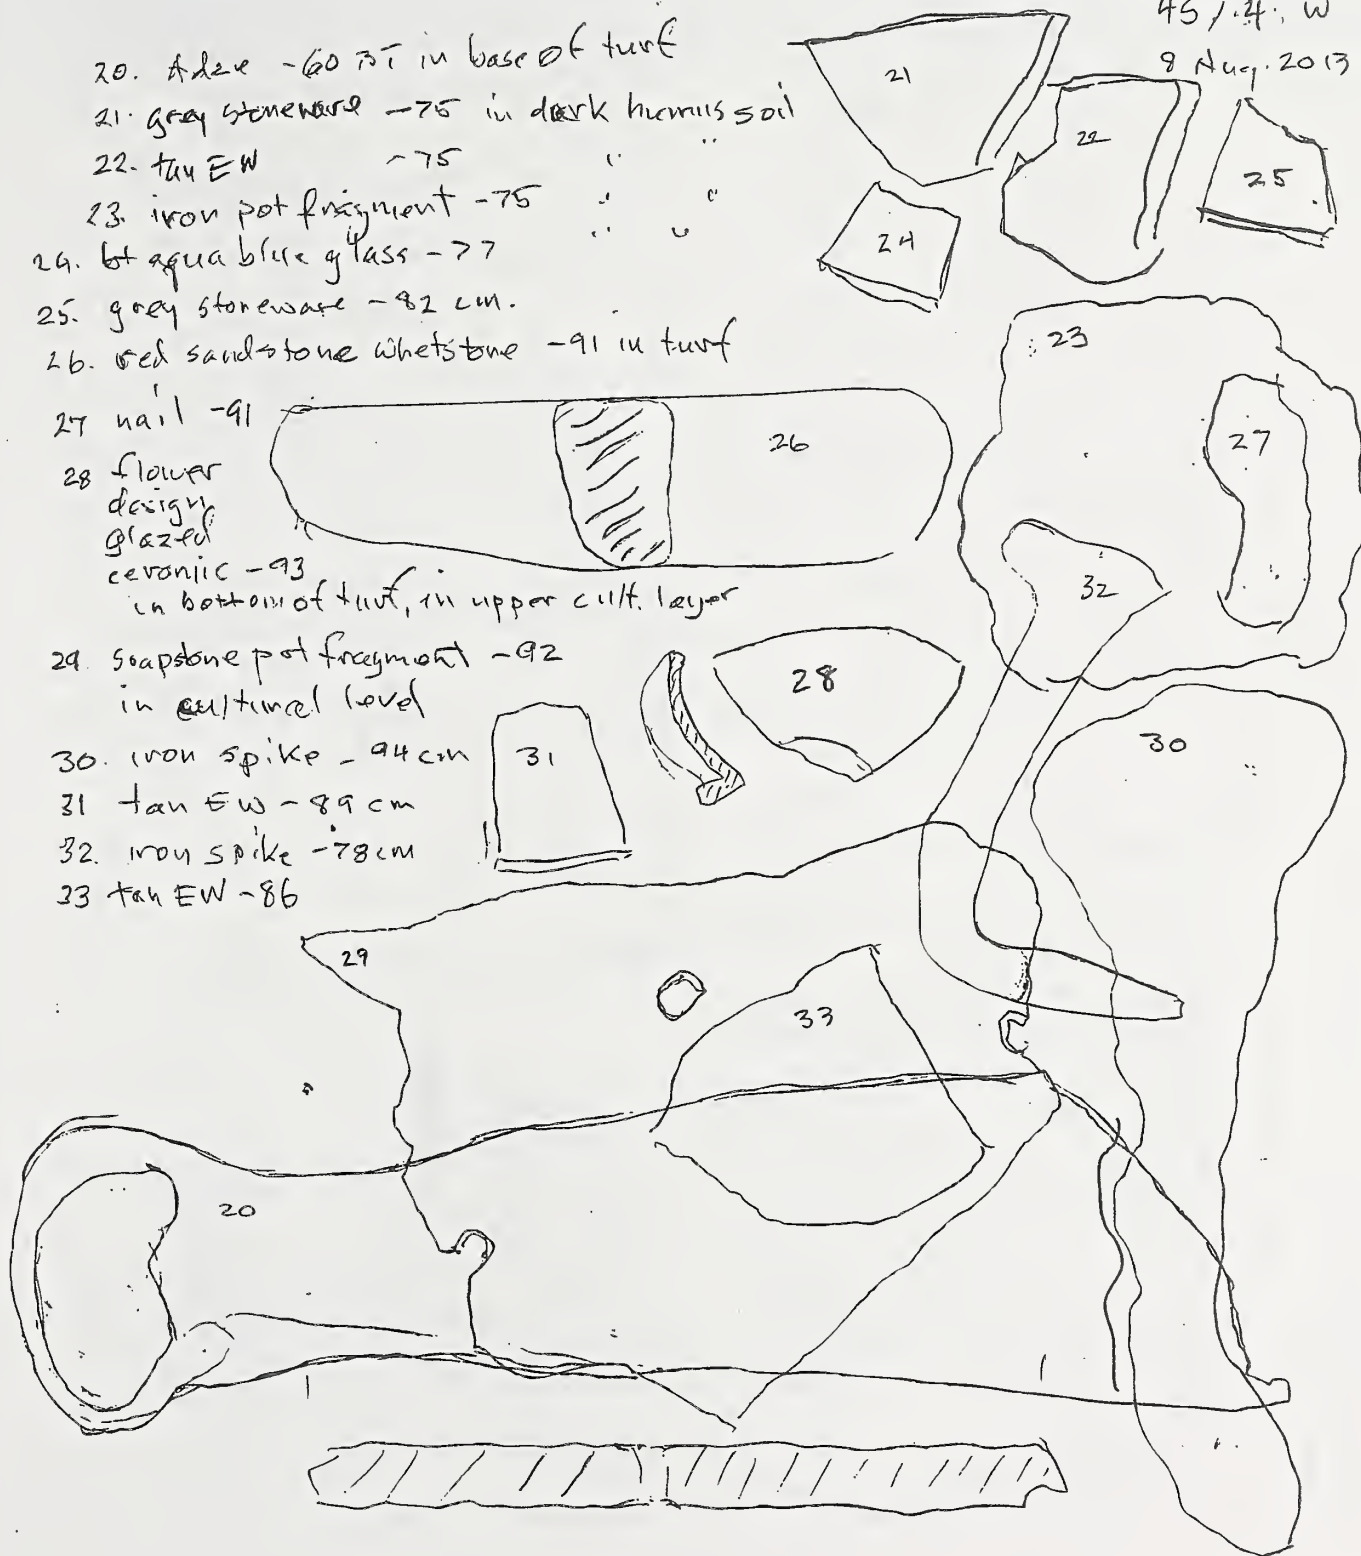 45 / 4. W
8 Aug. 2013
20. Adze -60 BT in base of turf
21. grey stoneware -75 in dark humus soil
22. tan EW -75 " "
23. iron pot fragment -75 " "
24. bt aqua blue glass -77 " "
25. grey stoneware -82 cm.
26. red sandstone whetstone -91 in turf
27 nail -91
28 flower
design
glazed
ceramic -93
in bottom of turf, in upper cult. layer
29. soapstone pot fragment -92
in cultural level
30. iron spike - 94 cm
31 tan EW - 89 cm
32. iron spike -78 cm
33 tan EW -86
21
22
25
24
23
26
27
32
28
31
30
29
33
20